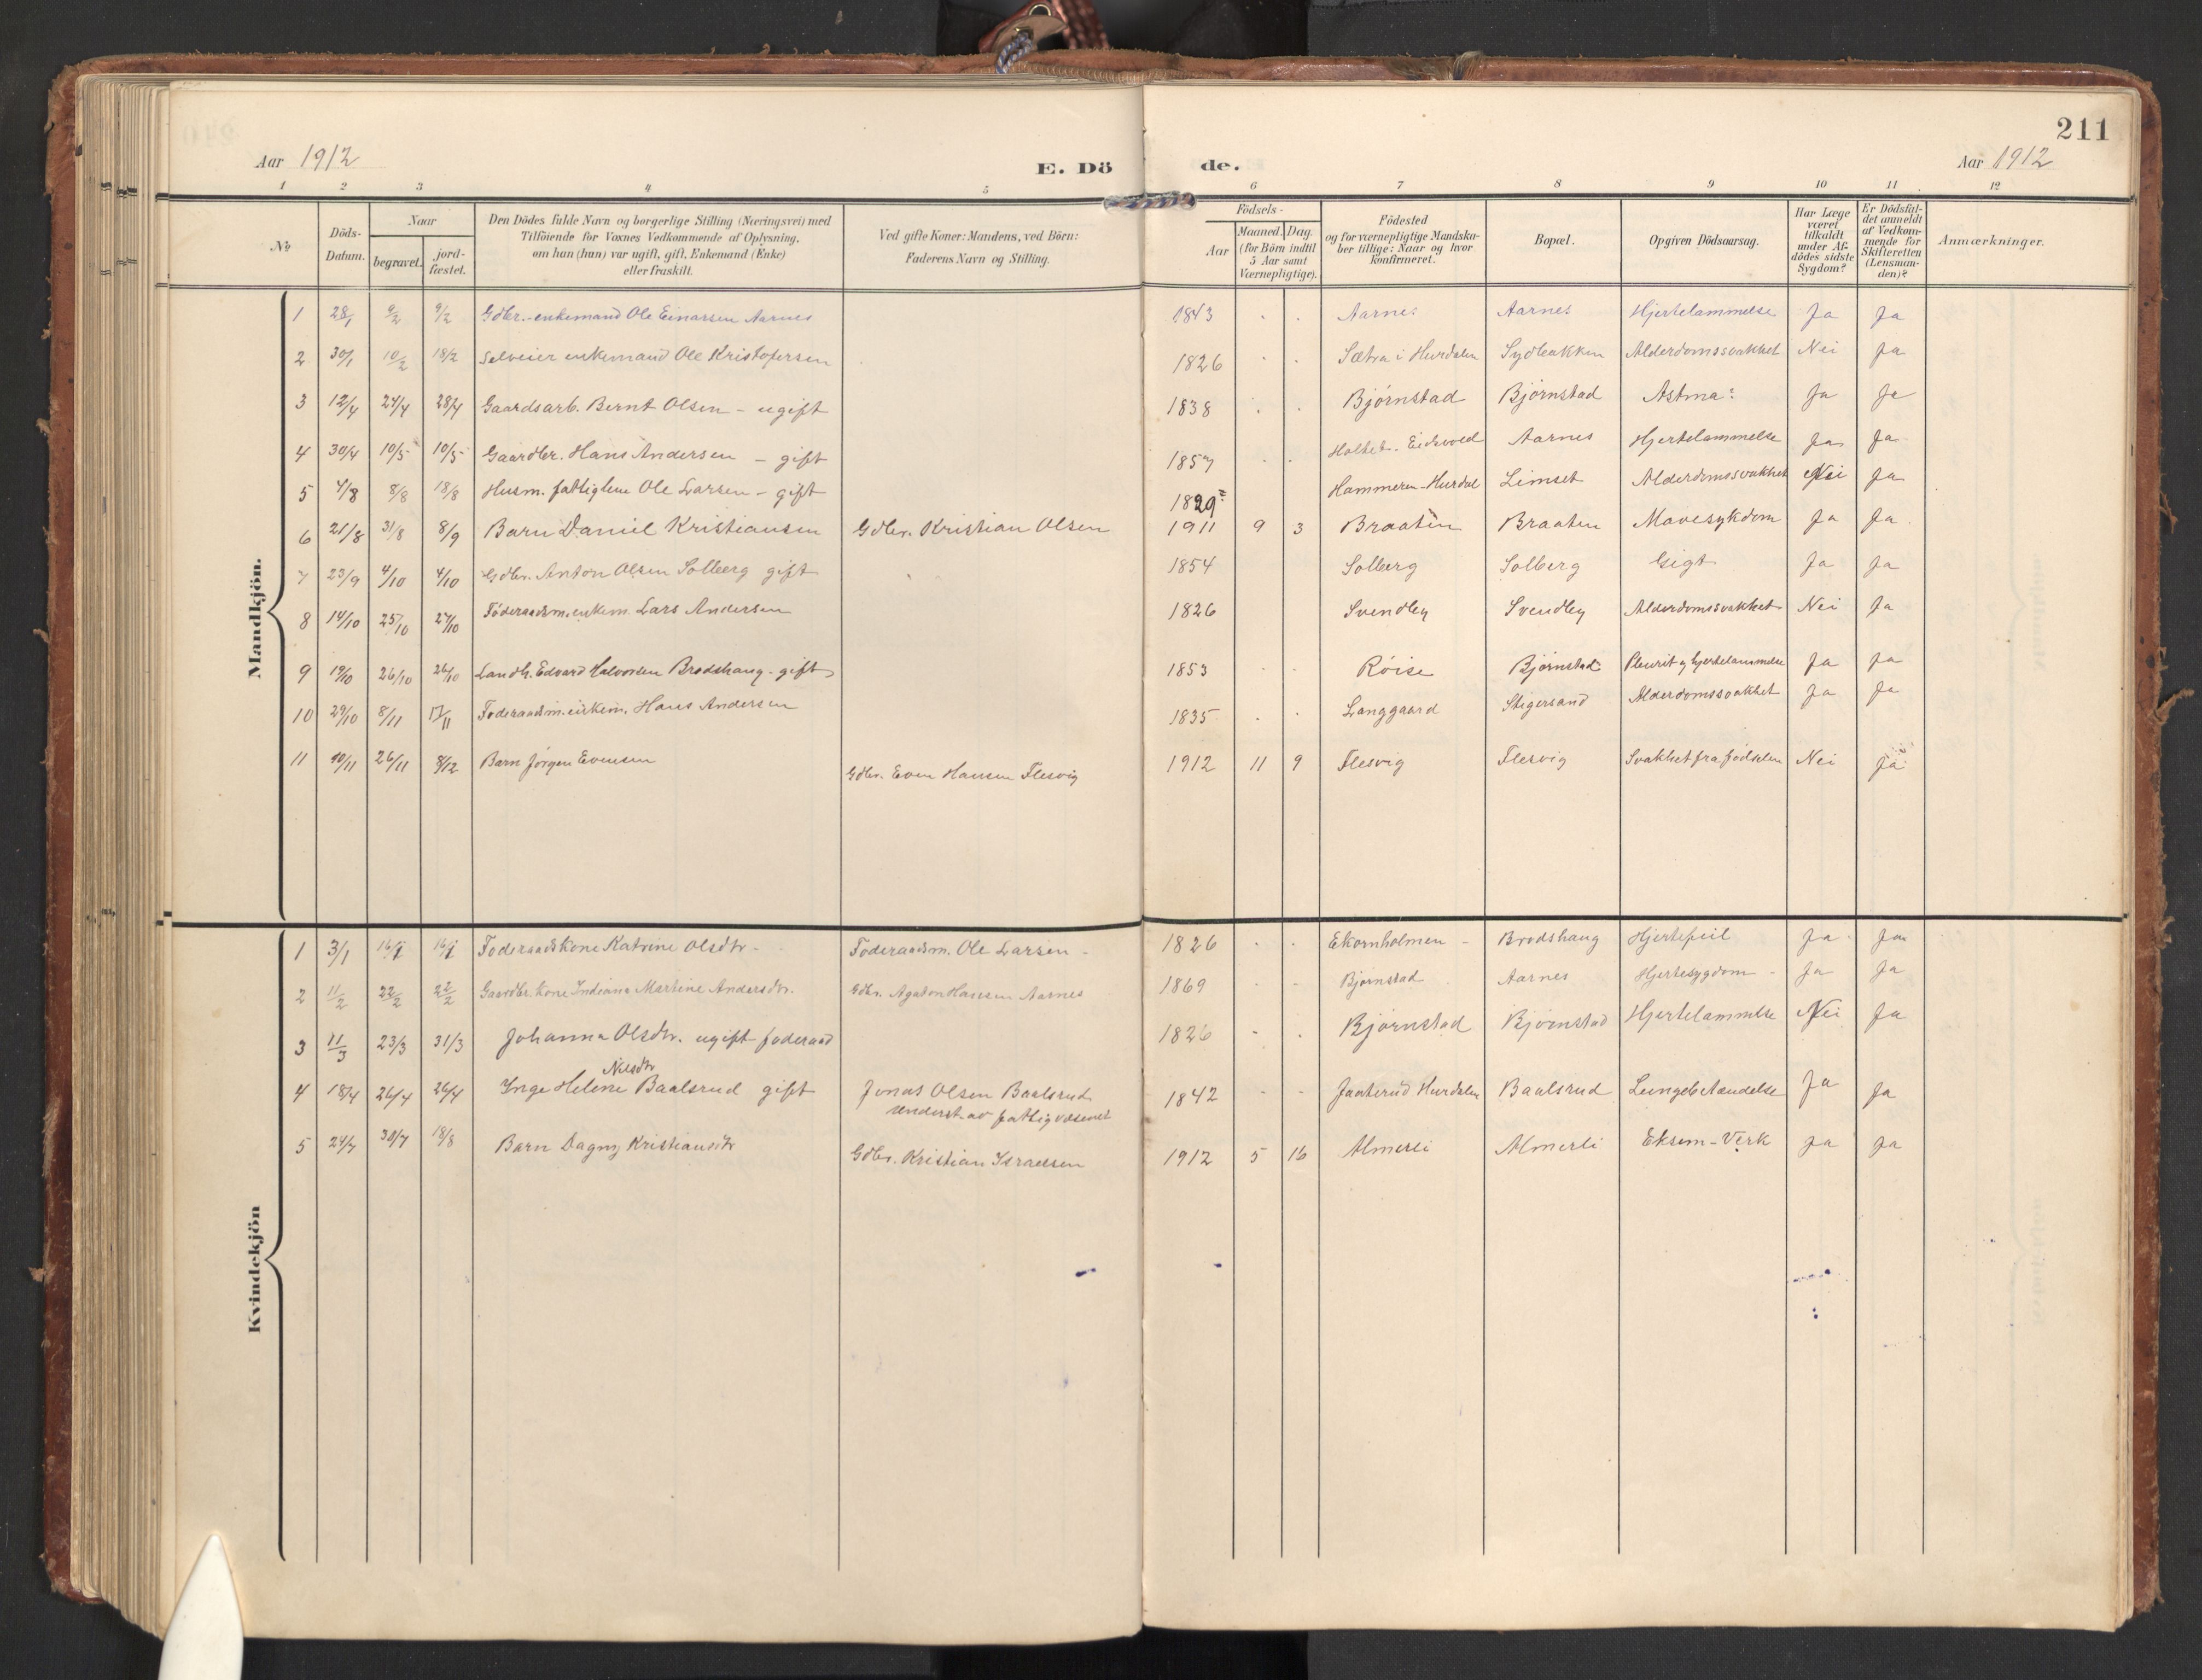 211
Aar 1912
E. Dö
de.
Aar 1912
1 2 3 4 5 6 7 8 9 10 11 12
No
Döds-Datum.
Naar
begravet.
jord-fæstet.
Den Dödes fulde Navn og borgerlige Stilling (Næringsvei) med
Tilföiende for Voxnes Vedkommende af Oplysning.
om han (hun) var ugift, gift, Enkemand (Enke)
eller fraskilt.
Ved gifte Koner: Mandens, ved Börn:
Faderens Navn og Stilling.
Födsels-
Aar
Maaned. Dag.
(for Börn indtil
5 Aar samt
Værnepligtige).
Födested
og for værnepligtige Mandska-
ber tillige: Naar og hvor
Konfirmeret.
Bopæl.
Opgiven Dödsaarsag.
Har Læge
været
tilkaldt
under Af-
dödes sidste
Sygdom?
Er Dödsfal-
det anmeldt
af Vedkom-
mende for
Skifteretten
(Lensman-
den)?
Anmærkninger.
Mandkjön.
1 28/1 9/2 9/2 Gdbr.-enkemand Ole Einarsen Aarnes 1843 Aarnes Aarnes Hjertelammelse Ja Ja
2 30/1 10/2 18/2 Selveier enkemand Ole Kristofersen 1826 Sætra i Hurdalen Sydbakken Alderdomssvakhet Nei Ja
3 12/4 24/4 28/4 Gaardsarb. Bernt Olsen - ugift 1838 Bjørnstad Bjørnstad Astma: Ja Ja
4 30/4 10/5 10/5 Gaardbr. Hans Andersen - gift 1857 Holtet. Eidsvold Aarnes Hjertelammelse Ja Ja
5 4/8 8/8 18/8 Husm. fattiglem Ole Larsen - gift 1829 Hammeren - Hurdal Limset Alderdomssvakhet Nei Ja
6 21/8 31/8 8/9 Barn Daniel Kristiansen Gdbr. Kristian Olsen 1911 9 3 Braaten Braaten Mavesykdom Ja Ja
7 23/9 4/10 4/10 Gdbr. Anton Olsen Solberg gift 1854 Solberg Solberg Gigt Ja Ja
8 14/10 25/10 27/10 Föderaadsm. enkem. Lars Andersen 1826 Svendby Svendby Alderdomssvakhet Nei Ja
9 19/10 26/10 26/10 Landh. Edvard Halvorsen Brodshaug - gift 1853 Röise Bjørnstad Pleurit og hjertelammelse Ja Ja
10 29/10 8/11 17/11 Föderaadsm. enkem. Hans Andersen 1835 Langgaard Stigersand Alderdomssvakhet Ja Ja
11 10/11 26/11 8/12 Barn Jörgen Evensen Gdbr. Even Hansen Flesvig 1912 11 9 Flesvig Flesvig Svakhet fra födselen Nei Ja
Kvindekjön
1 3/1 16/1 16/1 Föderaadskone Katrine Olsdtr - Föderaadsm. Ole Larsen - 1826 Ekornholmen - Brodshaug Hjertefeil Ja Ja
2 11/2 22/2 22/2 Gaardbr. kone Indiana Martine Andersdtr. Gdbr. Agaton Hansen Aarnes 1869 Bjørnstad Aarnes Hjertesygdom - Ja Ja
3 11/3 23/3 31/3 Johanna Olsdtr. ugift foderaad 1826 Bjørnstad Bjørnstad Hjertelammelse Nei Ja
Nilsdtr
4 18/4 26/4 26/4 Inge Helene Baalsrud gift Jonas Olsen Baalsrud 1842 Jaaterud Hurdalen Baalsrud Lungebetændelse Ja Ja
underst. av fattigvæsenet
5 24/7 30/7 18/8 Barn Dagny Kristiansdtr Gdbr. Kristian Israelsen 1912 5 16 Almerli Almerli Eksem - Verk Ja Ja